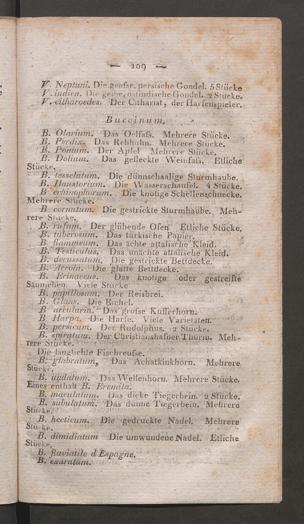 — 109 —
V. Neptuni. Die große persische Gondel. 5 Stücke
V. indica. Die gelbe ostindische Gondel. 2 Stücke.
V. citharoedes. Der Citharist, der Harfenspieler.
Buccinum.
B. Olarium. Das Oelfaß. Mehrere Stücke.
B. Perdix. Das Rebhuhn. Mehrere Stücke.
B. Pomum. Der Apfel Mehrere Stücke.
B. Dolium. Das gefleckte Weinfaß. Etliche
Stücke.
B. tesselatum. Die dünnschaalige Sturmhaube.
B. Haustorium. Die Wasserschaufel. 4 Stücke.
B. echinophorum. Die knotige Schellenschnecke.
Mehrere Stücke.
B. cornutum. Die gestrickte Sturmhaube. Meh-
rere Stücke.
B. rufum. Der glühende Ofen Etliche Stücke.
B. tuberosum. Das türkische Papier.
B. flammeum. Das ächte astalische Kleid.
B. Testiculus. Das unächte attalische Kleid.
B. decussatum. Die gestrickte Bettdecke.
B. Areola. Die glatte Bettdecke.
B. Erinaceus. Das knotige oder gestreifte
Säumchen. Viele Stücke
B. papillosum. Der Reisbrei.
B. Glans. Die Eichel.
B. arcularia. Das große Kufferhorn.
B. Harpa. Die Harfe. Viele Varietäten.
B. persicum. Der Rudolphus. 2 Stücke.
B. spiratum. Der Christianshafner Thurm. Meh-
rere Stücke.
Die länglichte Fischreuße.
B. glabratum, Das Achatkinkhorn. Mehrere
Stücke.
B. undatum. Das Wellenhorn. Mehrere Stücke.
Eines enthält B. Eremita.
B. maculatum. Das dicke Tigerbein. 2 Stücke.
B. subulatum. Das dünne Tigerbein. Mehrere
Stücke.
B. hecticum. Die gedruckte Nadel. Mehrere
Stücke.
B. dimidiatum Die umwundene Nadel. Etliche
Stücke.
B. fluviatile d'Espagne.
B. exaratum.